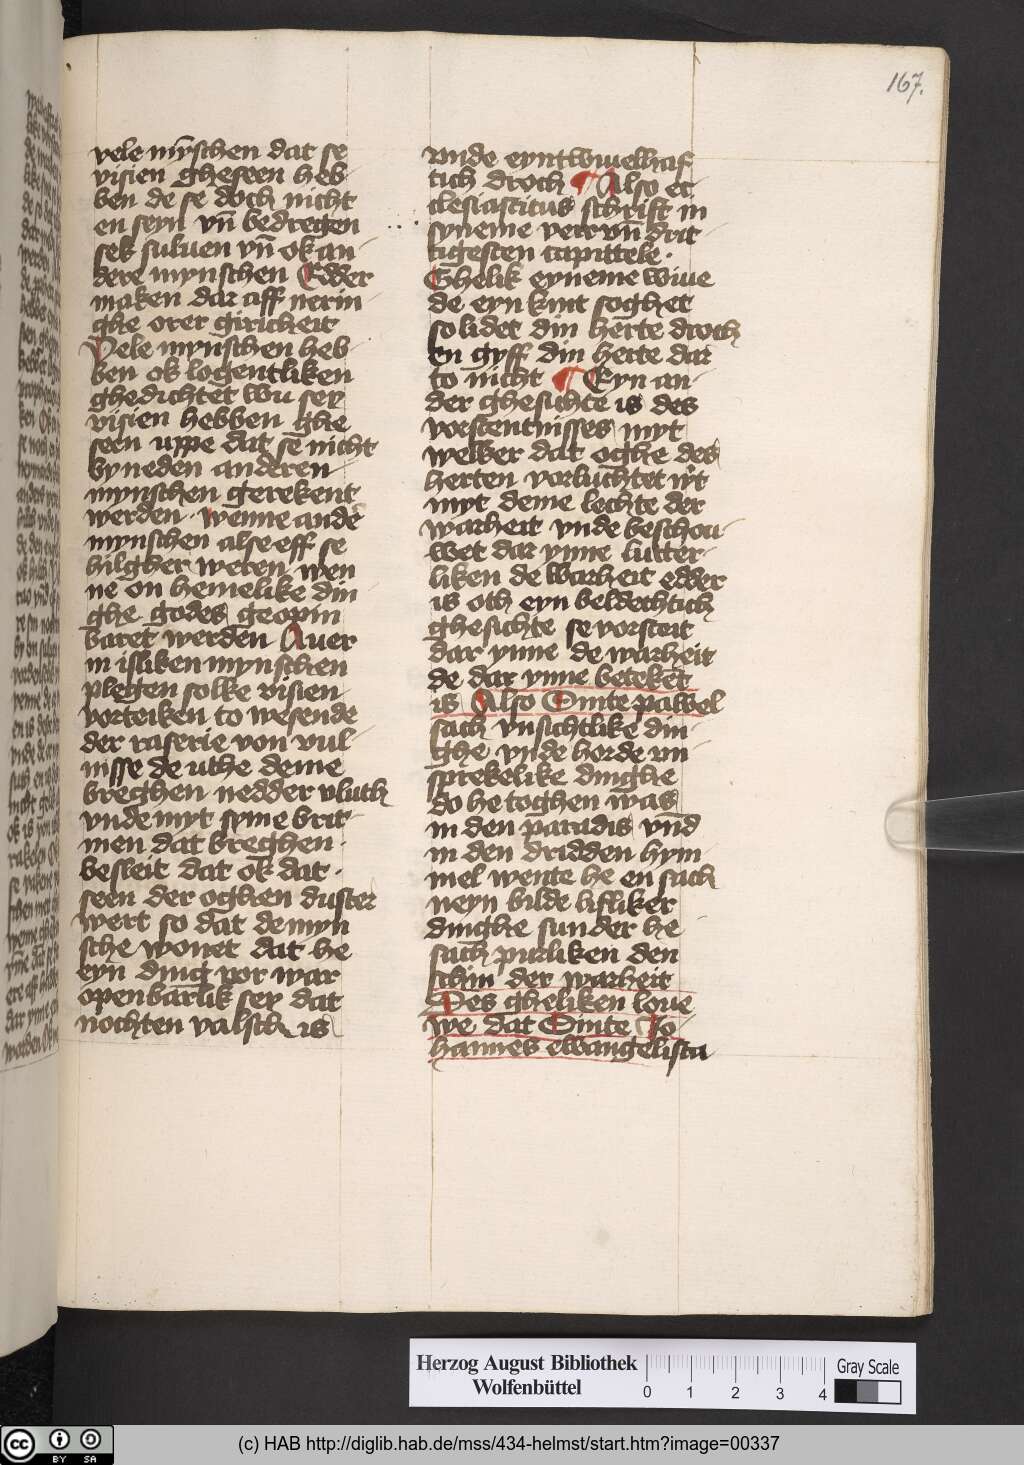 167.
vele mȳschen dat se
visien gheseen heb
ben de se doch nicht
en seyn vn̄ bedregen
sek suluen vn̄ ok an
dere mynschen Edder
maken dar aff nerin
ghe orer giricheit
Vele mynschen heb
ben ok logentliken
ghedichtet wu sey
visien hebben ghe
seen uppe dat se nicht
byneden anderen
mynschen gerekent
werden. wenne ander
mynschen alse eff se
hilgher weren wen
ne on hemelike din
ghe godes geopin
baret werden Auer
in isliken mynschen
plegen solke visien
vorteiken to wesende
der raserie von vul
nisse de uthe deme
breghen nedder vluth
vnde myt syme brit
men dat breghen
besleit dat ok dat
seen der oghen duster
wert so dat de myn
sche wonet dat he
eyn ding vor war
openbarlik sey dat
nochten valsch is
vnde eyntwiuelhaf
tich droch Also ec
clesiasticus schrift in
syneme veervn̄drit
tigesten capittele.
Ghelik eyneme wiue
de eyn kint soghet
so lidet din herte droch
en gyff din herte dar
to nicht Eyn an
der ghesichte is des
vorstentnisses myt
welker dat oghe des
herten vorluchtet wt
myt deme lechte der
warheit vnde beschou
wet dar ynne lutter
liken de warheit edder
is och eyn beldechtich
ghesichte se vorsteit
dar ynne de warheit
de dar ynne beteket
is Also Sinte pawel
sach vnsichtlike din
ghe vnde horde vn
sprekelike dinghe
do he toghen was
in den paradis vnd
in den dridden hym
mel wente he en sach
neyn bilde lisliker
dinghe sunder he
sach purliken den
schin der warheit
Des gheliken loue
we dat Sinte Jo
hannes ewangelista
Herzog August Bibliothek
Wolfenbüttel
0 1 2 3 4
Gray Scale
cc BY SA
(c) HAB http://diglib.hab.de/mss/434-helmst/start.htm?image=00337